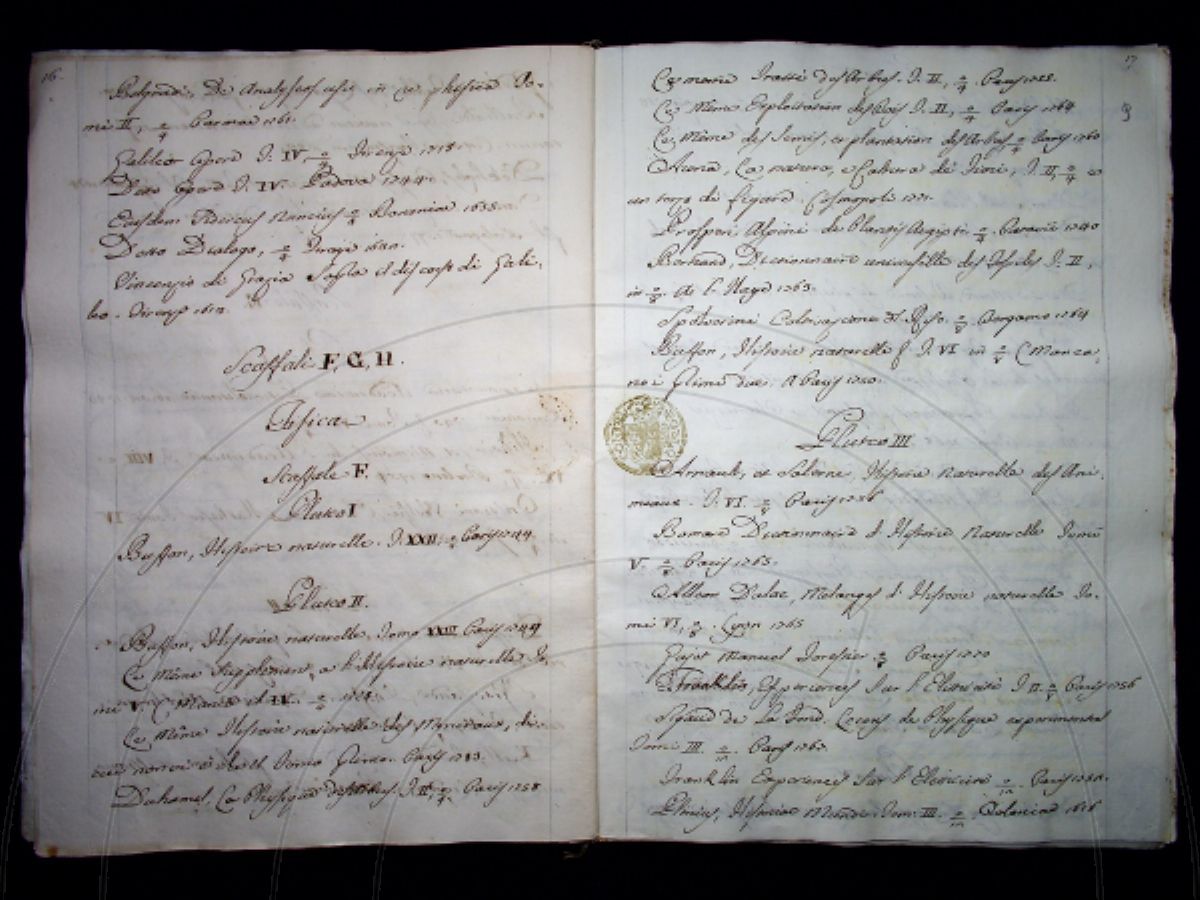 16.
Belgradi, De Analyseos usu in re phisica To-
mi II, 2/4 Parmae 1761.
Galileo Opere T. IV, 2/4 Firenze 1718
Dette Opere T. IV. Padova 1744.
Eiusdem Sidereus Nuncius 2/4 Bononiae 1655.
Detto Dialogo, 2/4 Firenze 1632.
Vincenzio di Grazia Sopra il discorso di Gali-
leo. Firenze 1613.
Scaffali F, G, H.
Fisica
Scaffale F.
Pluteo I
Buffon, Histoire naturelle. T. XXII. Paris 1749.
Pluteo II.
Buffon, Histoire naturelle. Tomo XXIII Paris 1749
Le même Supplement, a l'Histoire naturelle To-
mi V. (Manca il IV.
Le même Histoire naturelle des Mineraux, di
cui non vi è che il Tomo Primo. Paris 1783.
Duhamel, La Physique des Arbres. T. II, 2/4. Paris 1758
17
Le même Traité des Arbres. T. II, 2/4. Paris 1755.
Le Même Exploitation des Bois T. II, 2/4 Paris 1764
Le Même des Semis, et plantation des Arbres 2/4 Paris 1760
La natura, e Coltura di Fiori, T. II, 2/4 e
un tomo di figure. Cosmopoli
Prosperi, Alpini de Plantis Aegipti 2/4. Patavii 1640
Bertrand, Dictionnaire universelle des Fossiles T. II,
in 2/8. A la Haye 1763.
Spolverini Coltivazione del Riso. 2/8. Bergamo 1764
Buffon, Histoire naturelle T. VI in 2/8 (Manca-
no i primi due. A Paris 1750.
Pluteo III
Arnault, et Salerne, Histoire Naturelle des Ani-
maux. T. VI. 2/8 Paris 1756
Bomare Dictionnaire d'Histoire Naturelle Tomi
V. 2/8. Paris 1765.
Alleon Dulac, Melanges d'Histoire naturelle To-
mi VI, 2/8. Lyon 1765
Manuel Forestier 2/8 Paris 1770
Franklin, Experiences Sur l'Eletricité T. II. 2/8 Paris 1756
Sigaud de La Fond. Leçons de Physique experimental
Tomi III. 2/12. Paris 1767
Franklin Experiences Sur l'Eletricité 2/12. Paris
Plinius, Historiae Mundi Tom. III. 2/12